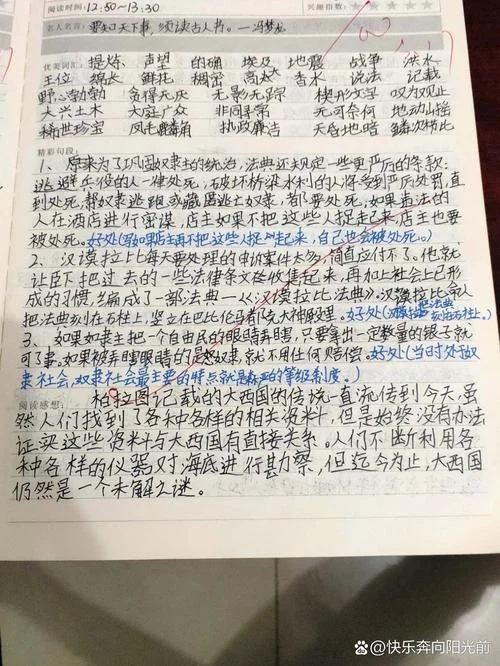 阅读时间: 12:50~13:30 兴趣指数: ★★★★★
名人名言: 要知天下事,须读古人书。—冯梦龙
优美词汇: 提炼 声望 的确 埃及 地震 战争 洪水
王位 绵长 鲜花 稠密 高大 香水 说法 记载
野心勃勃 贪得无厌 无影无踪 楔形文字 叹为观止
大兴土木 大庭广众 非同寻常 无可奈何 地动山摇
稀世珍宝 凤毛麟角 执政廉洁 天昏地暗 鳞次栉比
精彩句段:
1、原来为了巩固奴隶主的统治,法典还规定一些更严厉的条款:
逃避兵役的人一律处死,破坏桥梁水利的人将受到严厉处罚,直
到处死,帮奴隶逃跑或藏匿逃亡奴隶,都要处死,如果违法的
人在酒店进行密谋,店主如果不把这些人捉起来,店主也要
被处死。好处(写如果店主再不把这些人捉起来,自己也会被处死。)
2、汉谟拉比每天要处理的申诉案件太多,简直应付不了。他就
让臣下把过去的一些法律条文收集起来,再加上社会上已形
成的习惯,编成了一部法典—《汉谟拉比法典》。汉谟拉比命人
把法典刻在石柱上,竖立在巴比伦马都克大神殿里。好处(汉谟拉比把法典刻在石柱上。)
3、如果奴隶主把一个自由民的眼睛弄瞎,只要拿出一定数量的银子就
可了事,如果被弄瞎眼睛的是奴隶,就不用任何赔偿。好处(当时处于奴
隶社会,奴隶社会最主要的特点就是森严的等级制度。)
阅读感想: 柏拉图记载的大西国的传统一直流传到今天,虽
然人们找到了各种各样的相关资料,但是始终没有办法
证实这些资料与大西国有直接关系。人们不断利用各
种各样的仪器对海底进行勘察,但迄今为止,大西国
仍然是一个未解之谜。
@快乐奔向阳光前